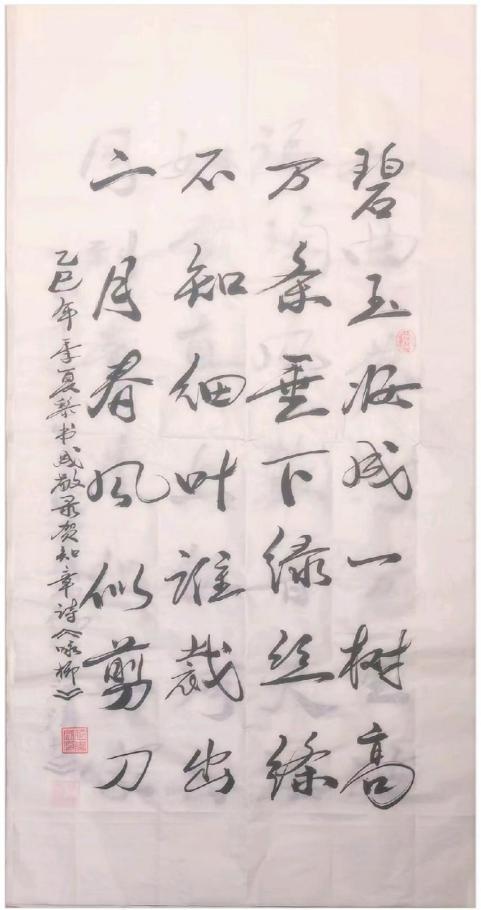 碧玉妆成一树高
万条垂下绿丝绦
不知细叶谁裁出
二月春风似剪刀
乙巳年季夏书成敬录贺知章诗《咏柳》